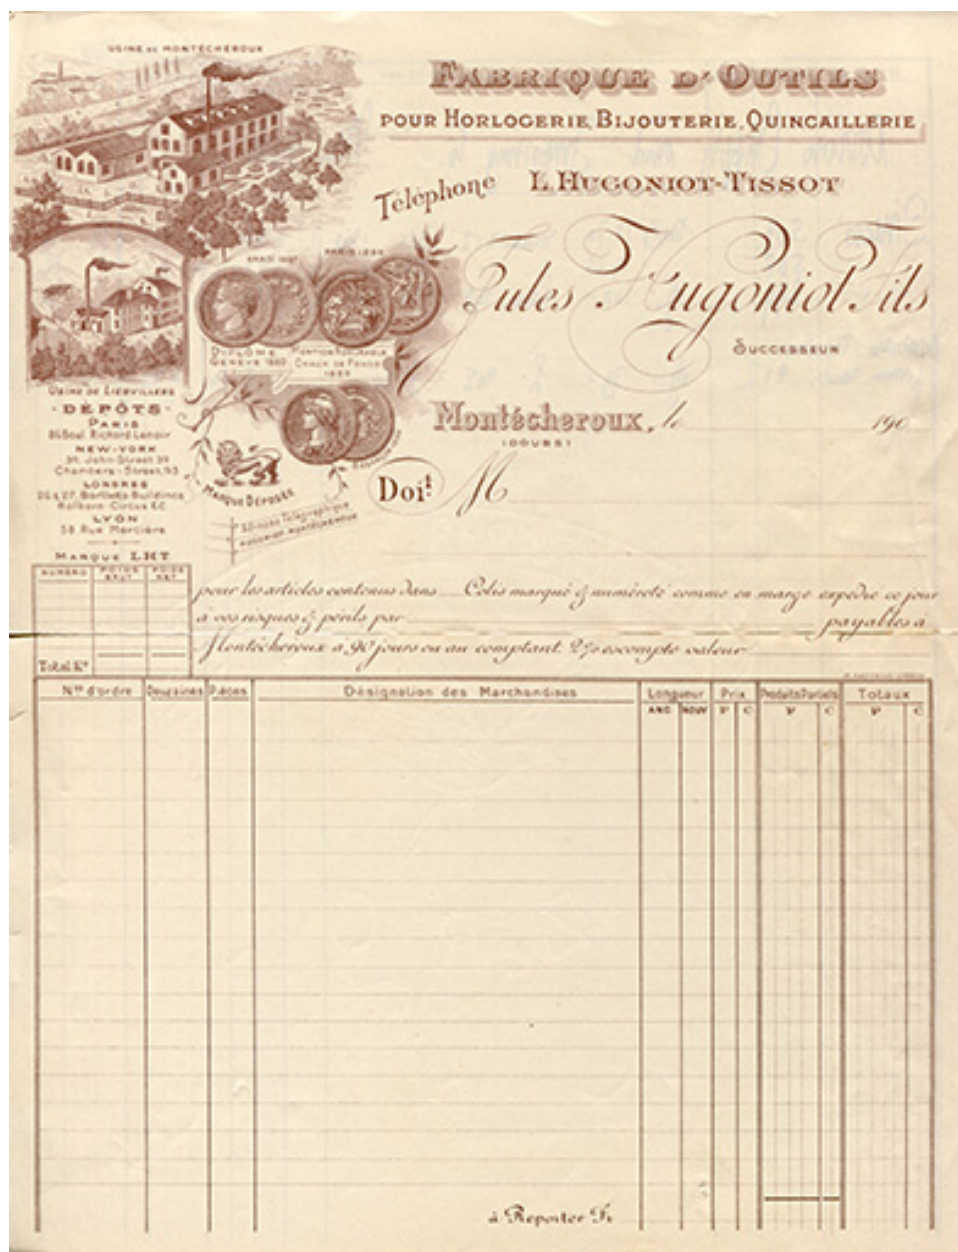 USINE DE MONTÉCHEROUX
FABRIQUE D'OUTILS
POUR HORLOGERIE, BIJOUTERIE, QUINCAILLERIE
Téléphone
L. HUGONIOT-TISSOT
Jules Hugoniot Fils
SUCCESSEUR
PARIS 1889
DIPLÔME
GENÈVE 1880
MENTION HONORABLE
CHAUX DE FONDS
USINE DE LIEBVILLERS
- DÉPÔTS -
PARIS
Boul. Richard Lenoir
NEW-YORK
39, John-Street 39
Chambers-Street, 93
LONDRES
26 & 27, Bartletts Buildings
Holborn Circus E.C
LYON
58 Rue Mercière
MARQUE LHT
MARQUE DÉPOSÉE
Adresse Télégraphique
HUGONIOT-MONTÉCHEROUX
Montécheroux, le 190
(DOUBS)
Doit M
NUMÉRO POIDS BRUT POIDS NET
Total Ks
pour les articles contenus dans Colis marqué & numéroté comme en marge expédié ce jour
à vos risques & périls par payables à
Montécheroux à 90 jours ou au comptant 2% escompte valeur
Nos d'ordre Douzaines Pièces Désignation des Marchandises Longueur Prix Produits Partiels Totaux
ANC NOUV F C F C F C
à Reporter Fr